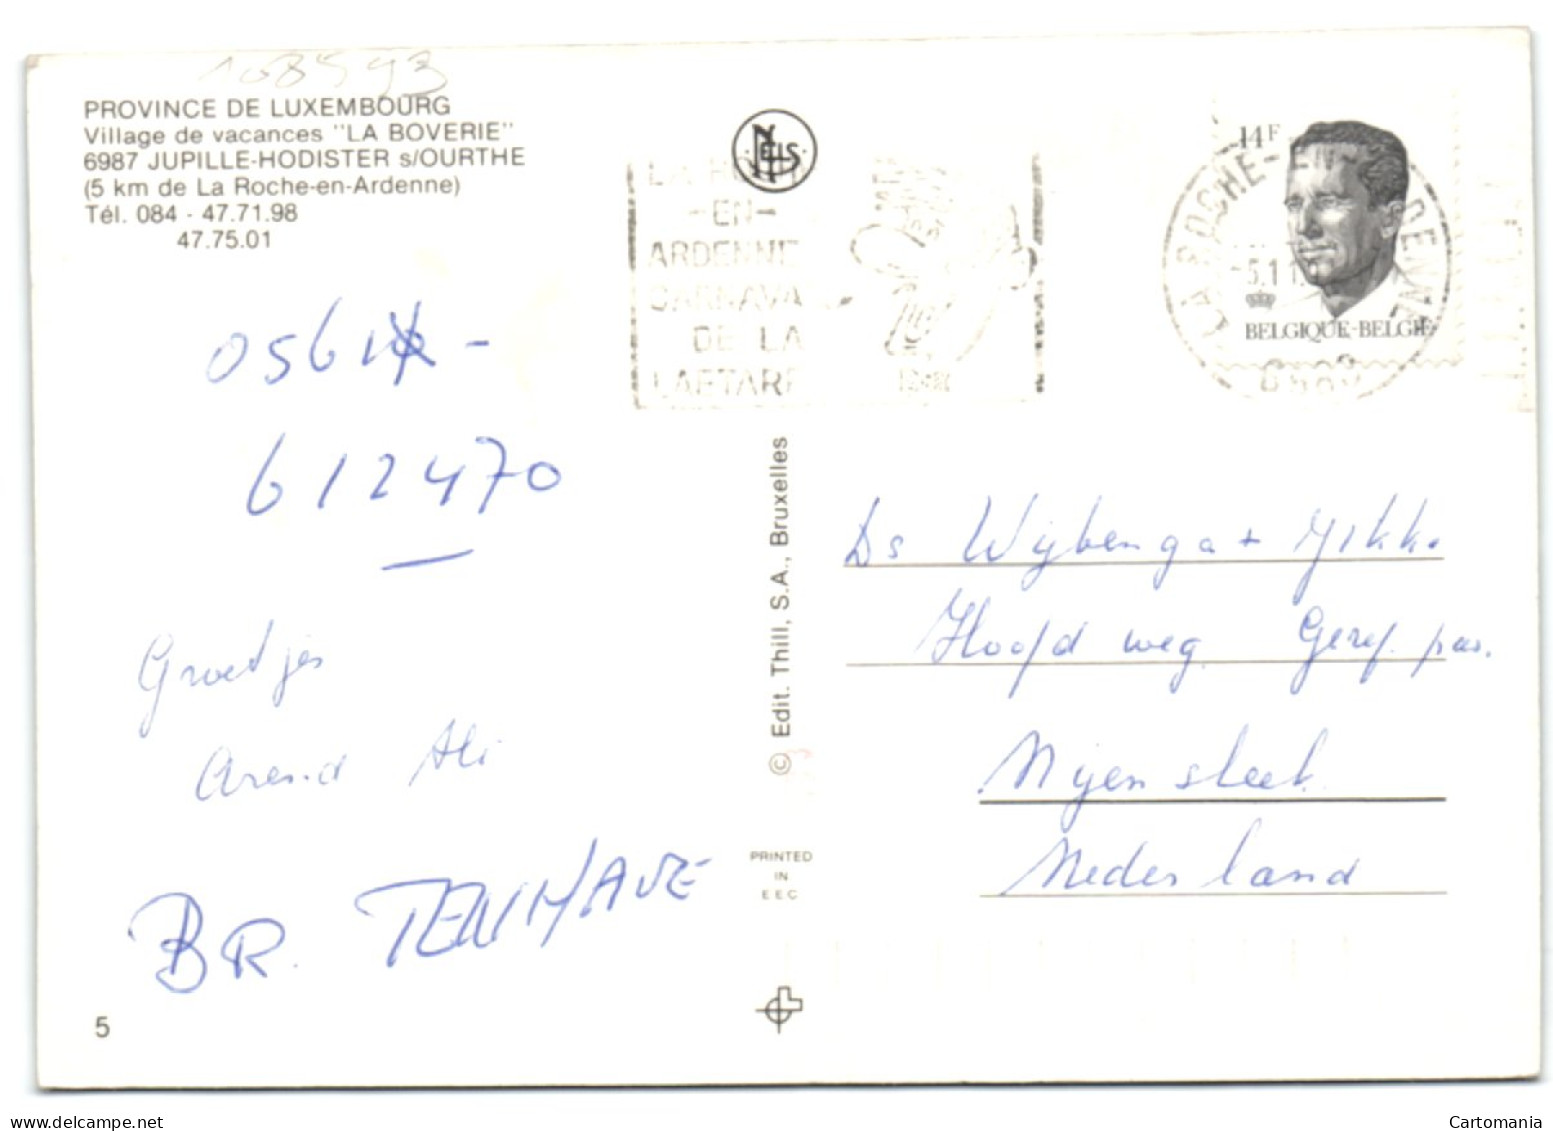 108593
PROVINCE DE LUXEMBOURG
Village de vacances "LA BOVERIE"
6987 JUPILLE-HODISTER s/OURTHE
(5 km de La Roche-en-Ardenne)
Tél. 084 - 47.71.98
47.75.01
NELS
LA ROCHE
-EN-
ARDENNE
CARNAVAL
DE LA
LAETARE
14F
LA ROCHE-EN-ARDENNE
BELGIQUE-BELGIË
0561 -
612470
Groetjes
Arend Ali
BR. TENHAVE
© Edit. Thill, S.A., Bruxelles
PRINTED
IN
EEC
5
Ds Wijbenga +
Hoofdweg Geref. pas.
Nijensleek
Nederland
Cartomania